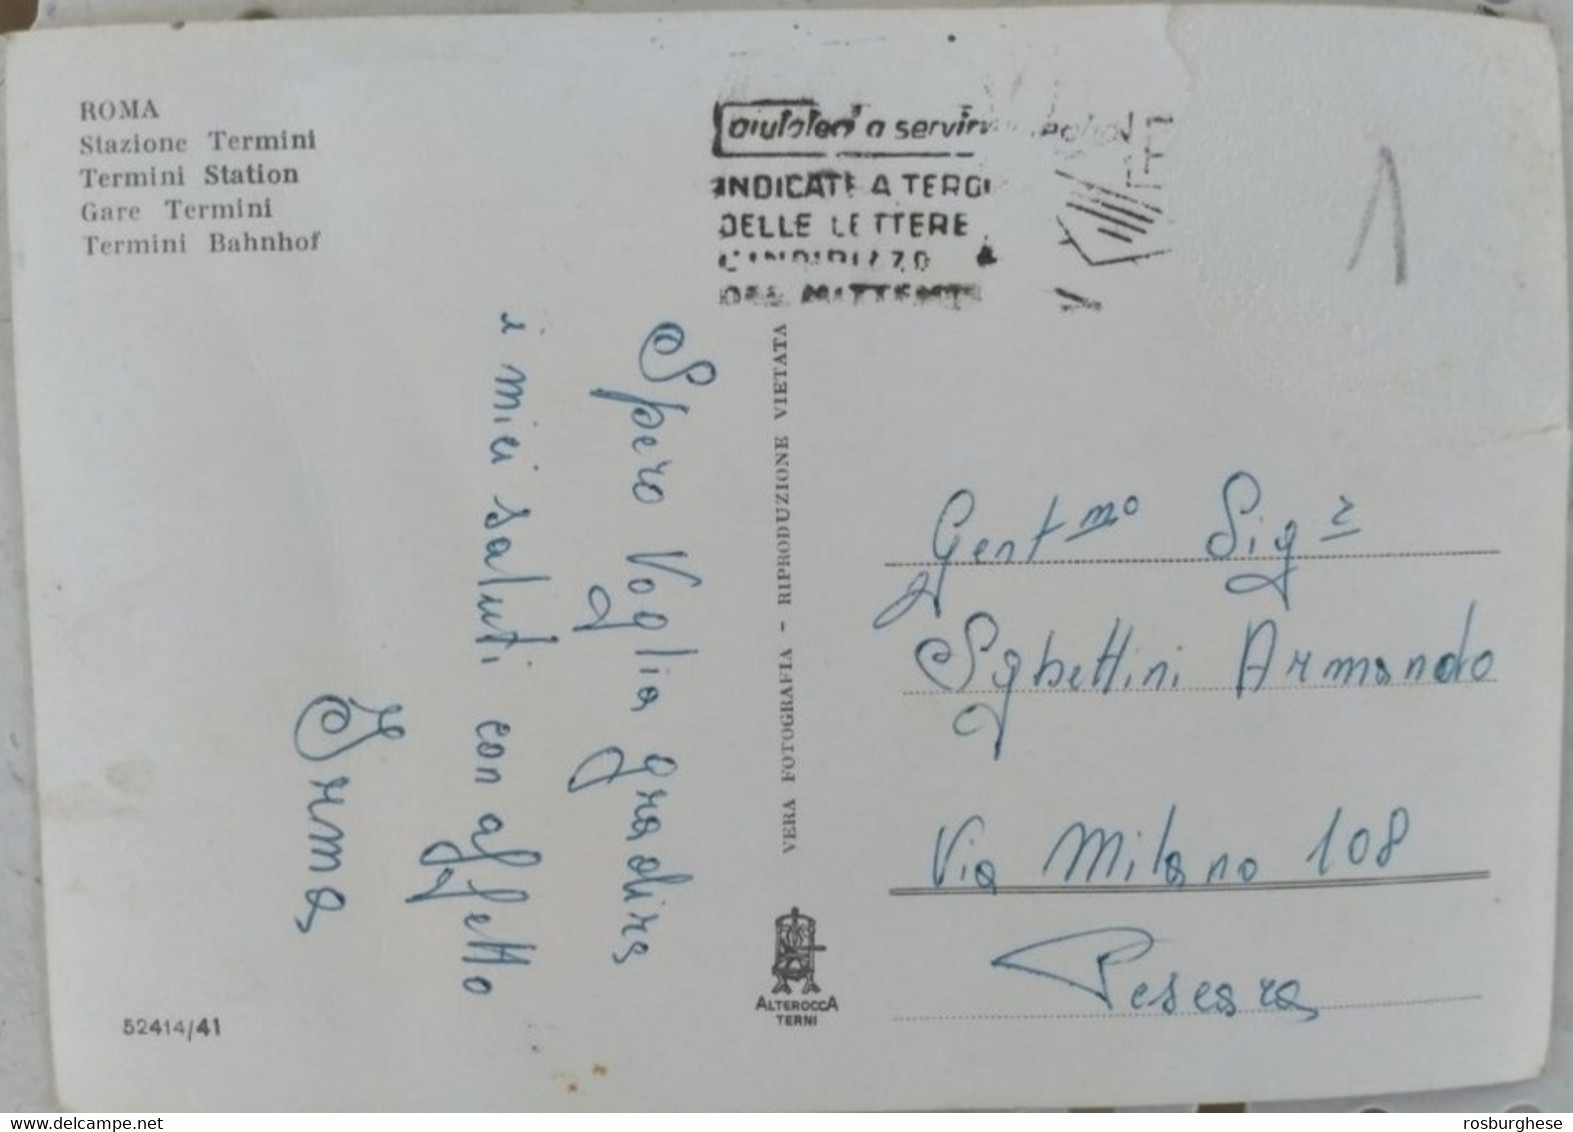 ROMA
Stazione Termini
Termini Station
Gare Termini
Termini Bahnhof
aiutateci a servirvi
INDICATE A TERGO
DELLE LETTERE
L'INDIRIZZO
DEL MITTENTE
1
Spero Voglia gradire
i miei saluti con affetto
Irma
VERA FOTOGRAFIA - RIPRODUZIONE VIETATA
Gent mo Sig r
Sgbettini Armando
Via Milano 108
Pescara
ALTEROCCA
TERNI
52414/41
delcampe.net
rosburghese